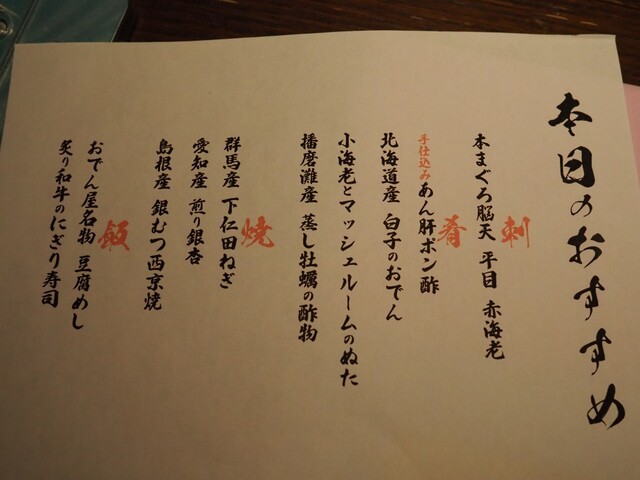 本日のおすすめ
刺
本まぐろ脳天 平目 赤海老
肴
手仕込みあん肝ポン酢
北海道産 白子のおでん
小海老とマッシュルームのぬた
播磨灘産 蒸し牡蠣の酢物
焼
群馬産 下仁田ねぎ
愛知産 煎り銀杏
島根産 銀むつ西京焼
飯
おでん屋名物 豆腐めし
炙り和牛のにぎり寿司